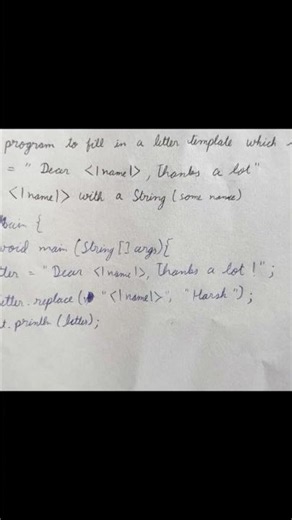 program to fill in a letter template which
= " Dear <|name|>, Thanks a lot"
<|name|> with a String (some name)
{
void main (String [] args){
= "Dear <|name|>, Thanks a lot !" ;
.replace ( "<|name|>", "Harsh") ;
. println (letter);